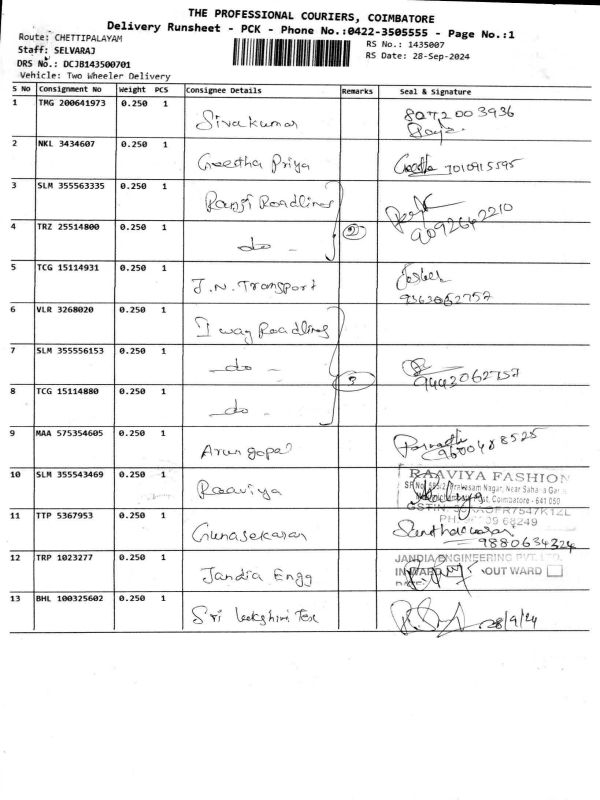 THE PROFESSIONAL COURIERS, COIMBATORE
Delivery Runsheet - PCK - Phone No.:0422-3505555 - Page No.:1
Route: CHETTIPALAYAM
RS No.: 1435007
Staff: SELVARAJ
RS Date: 28-Sep-2024
DRS No.: DCJB143500701
Vehicle: Two Wheeler Delivery
S No Consignment No Weight PCS Consignee Details Remarks Seal & Signature
1 TMG 200641973 0.250 1 Sivakumar 8072003936
2 NKL 3434607 0.250 1 Geetha Priya Geetha 7010915595
3 SLM 355563335 0.250 1 Ranji Roadlines
4 TRZ 25514800 0.250 1 - do - 2 9092642210
5 TCG 15114931 0.250 1 J.N. Transport
9363062757
6 VLR 3268020 0.250 1 I way Roadlines
7 SLM 355556153 0.250 1 - do - 3 9443062757
8 TCG 15114880 0.250 1 - do -
9 MAA 575354605 0.250 1 Arungopal 9600488525
10 SLM 355543469 0.250 1 Raaviya RAAVIYA FASHION
Prakasam Nagar, Near Sahara Gar
Coimbatore - 641 050
GSTIN
11 TTP 5367953 0.250 1 Gunasekaran 09 68249
9880634324
12 TRP 1023277 0.250 1 Jandia Engg JANDIA ENGINEERING PVT. LTD.
INWARD OUT WARD
13 BHL 100325602 0.250 1 Sri Lakshmi Tex 28/9/24